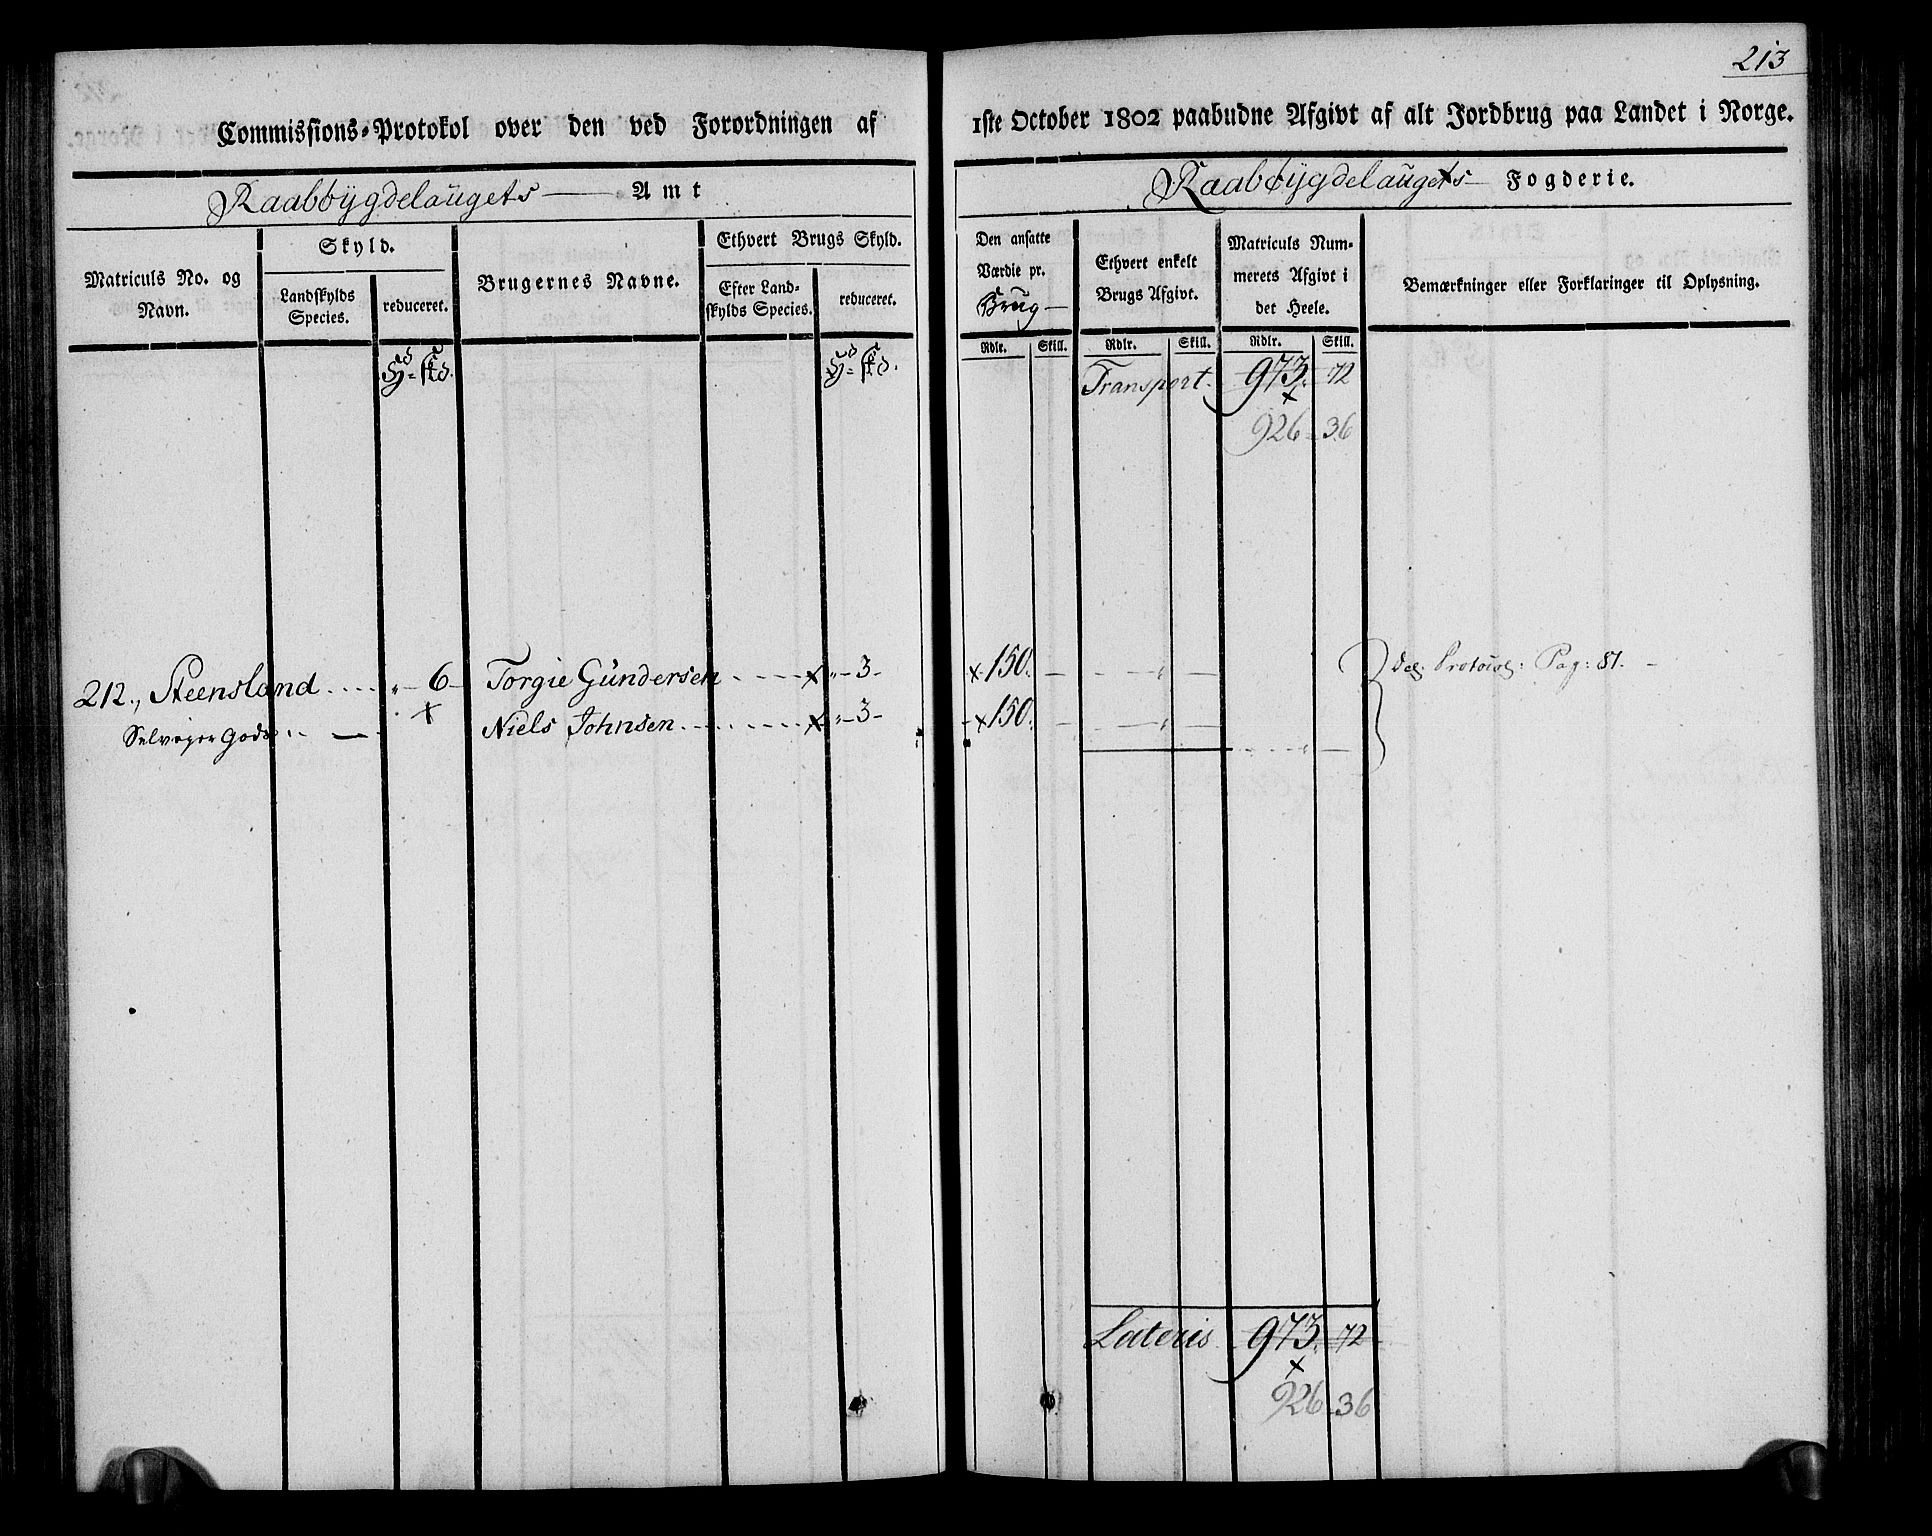 213
Commissions-Protokol over den ved Forordningen af 1ste October 1802 paabudne Afgivt af alt Jordbrug paa Landet i Norge.
Raabÿgdelaugets Amt
Raabÿgdelaugets Fogderie.
Matriculs No. og Navn.
Skyld.
Landskylds Species.
reduceret.
Brugernes Navne.
Ethvert Brugs Skyld.
Efter Landskylds Species.
reduceret.
Den ansatte Værdie pr. Brug
Ethvert enkelt Brugs Afgivt.
Matriculs Nummerets Afgivt i det Heele.
Bemærkninger eller Forklaringer til Oplysning.
Rdlr. Skill. Rdlr. Skill. Rdlr. Skill.
Transport. 973. 72
926 - 36
212., Steensland 6 Torgie Gundersen x 3 x 150. Protocol: Pag: 81.
Selveyer Gods x Niels Johnsen x 3 x 150.
Lateris 973. 72
926 - 36